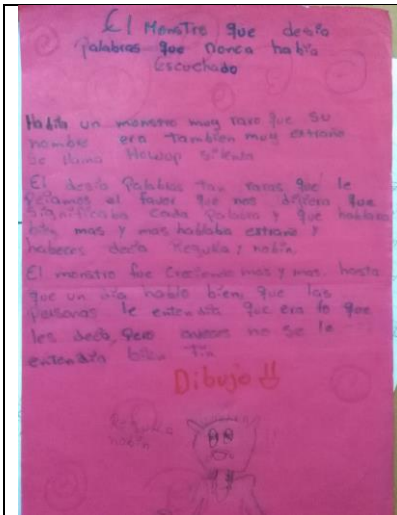 El Monstro que desia
Palabras que nonca habia
Escuchado
Habia un monstro muy raro que su
nombre era tambien muy extraño
se llama
El desia Palabras tan raras que le
pediamos el favor que nos dijera que
significaba cada Palabra y que hablara
bien mas y mas hablaba extraño y
habeces decia Requka y nobin
El monstro fue creciendo mas y mas hasta
que un dia hablo bien, que las
Personas le entendia que era lo que
les decia, Pero aveces no se le
entendia bien Fin
Dibujo
Requka
nobin